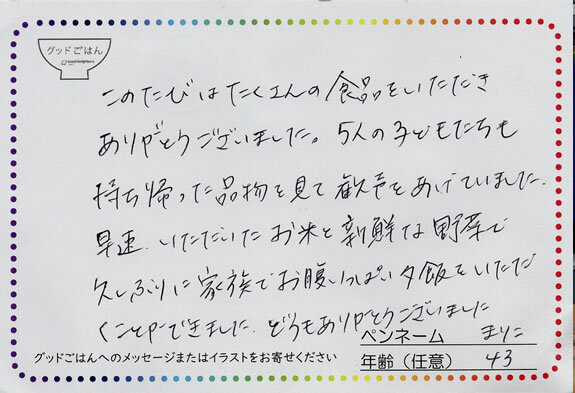 グッドごはん
Good Neighbors
このたびはたくさんの食品をいただき
ありがとうございました。5人の子どもたちも
持ち帰った品物を見て歓声をあげていました。
早速、いただいたお米と新鮮な野菜で
久しぶりに家族でお腹いっぱい夕飯をいただ
くことができました。どうもありがとうございました
ペンネーム まりこ
グッドごはんへのメッセージまたはイラストをお寄せください 年齢（任意） 43